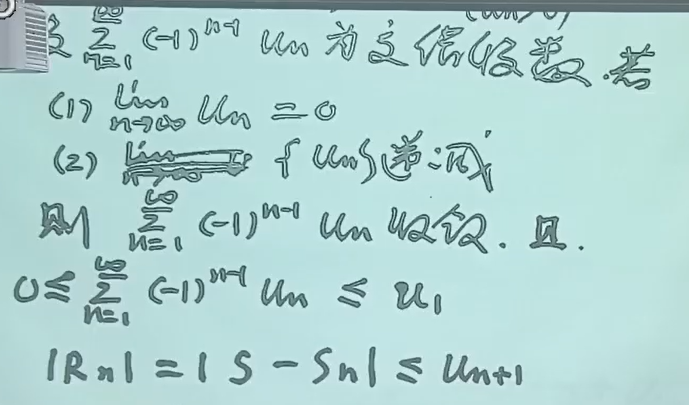 (un>0)
设 ∑_{n=1}^{∞} (-1)^{n-1} un 为交错级数.若
(1) lim_{n→∞} un = 0
(2) {un}递减
则 ∑_{n=1}^{∞} (-1)^{n-1} un 收敛. 且.
0 ≤ ∑_{n=1}^{∞} (-1)^{n-1} un ≤ u1
|Rn| = | S - Sn| ≤ un+1